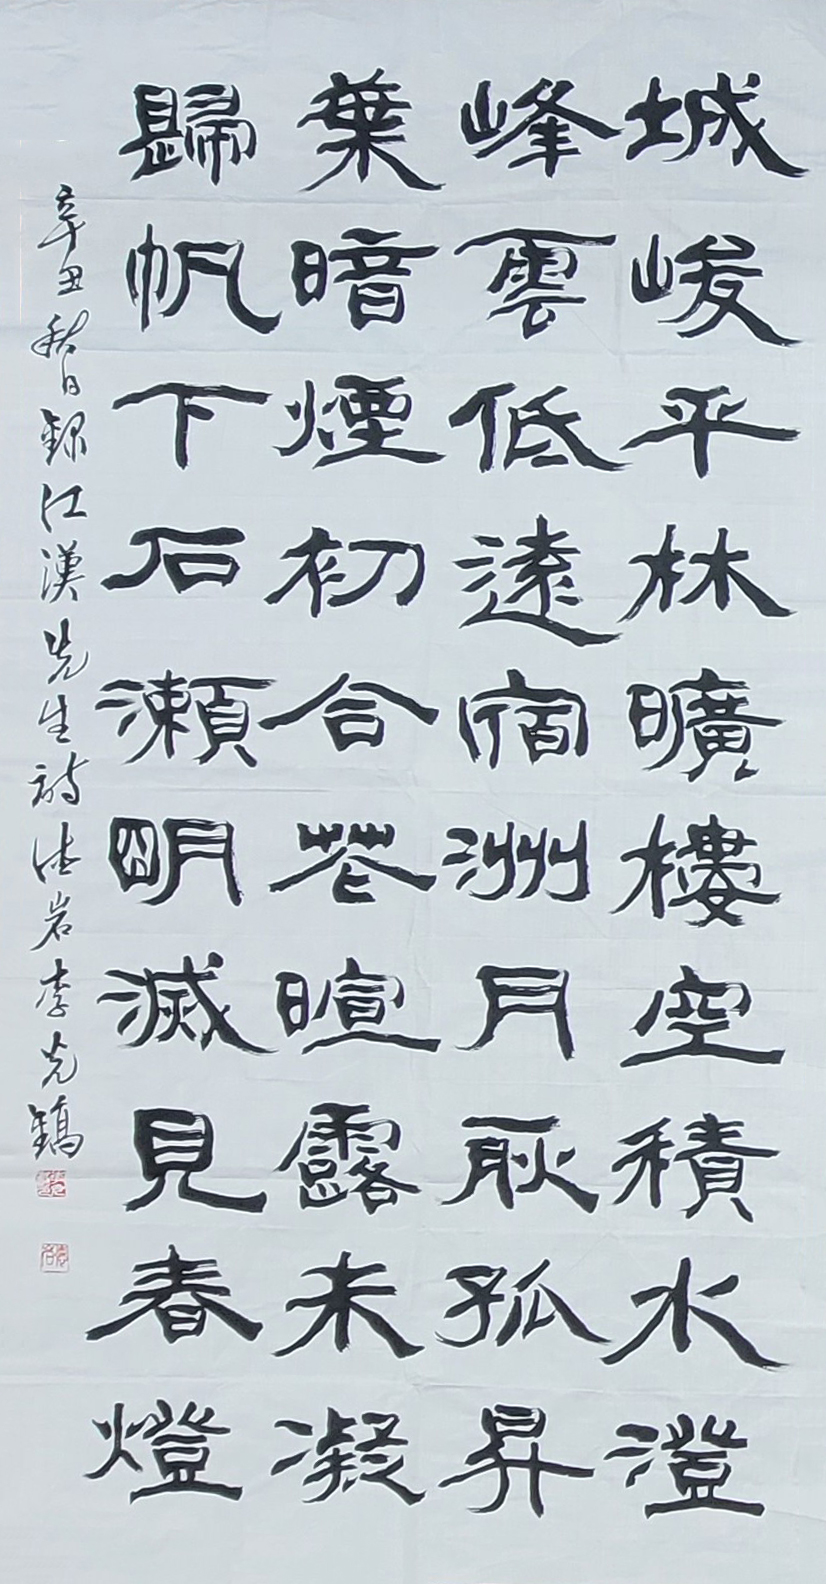 城峻平林曠樓空積水澄
峰雲低遠宿洲月耿孤昇
葉暗煙初合花暄露未凝
歸帆下石瀨明滅見春燈
辛丑秋日錄江漢先生詩 岩李克鎬